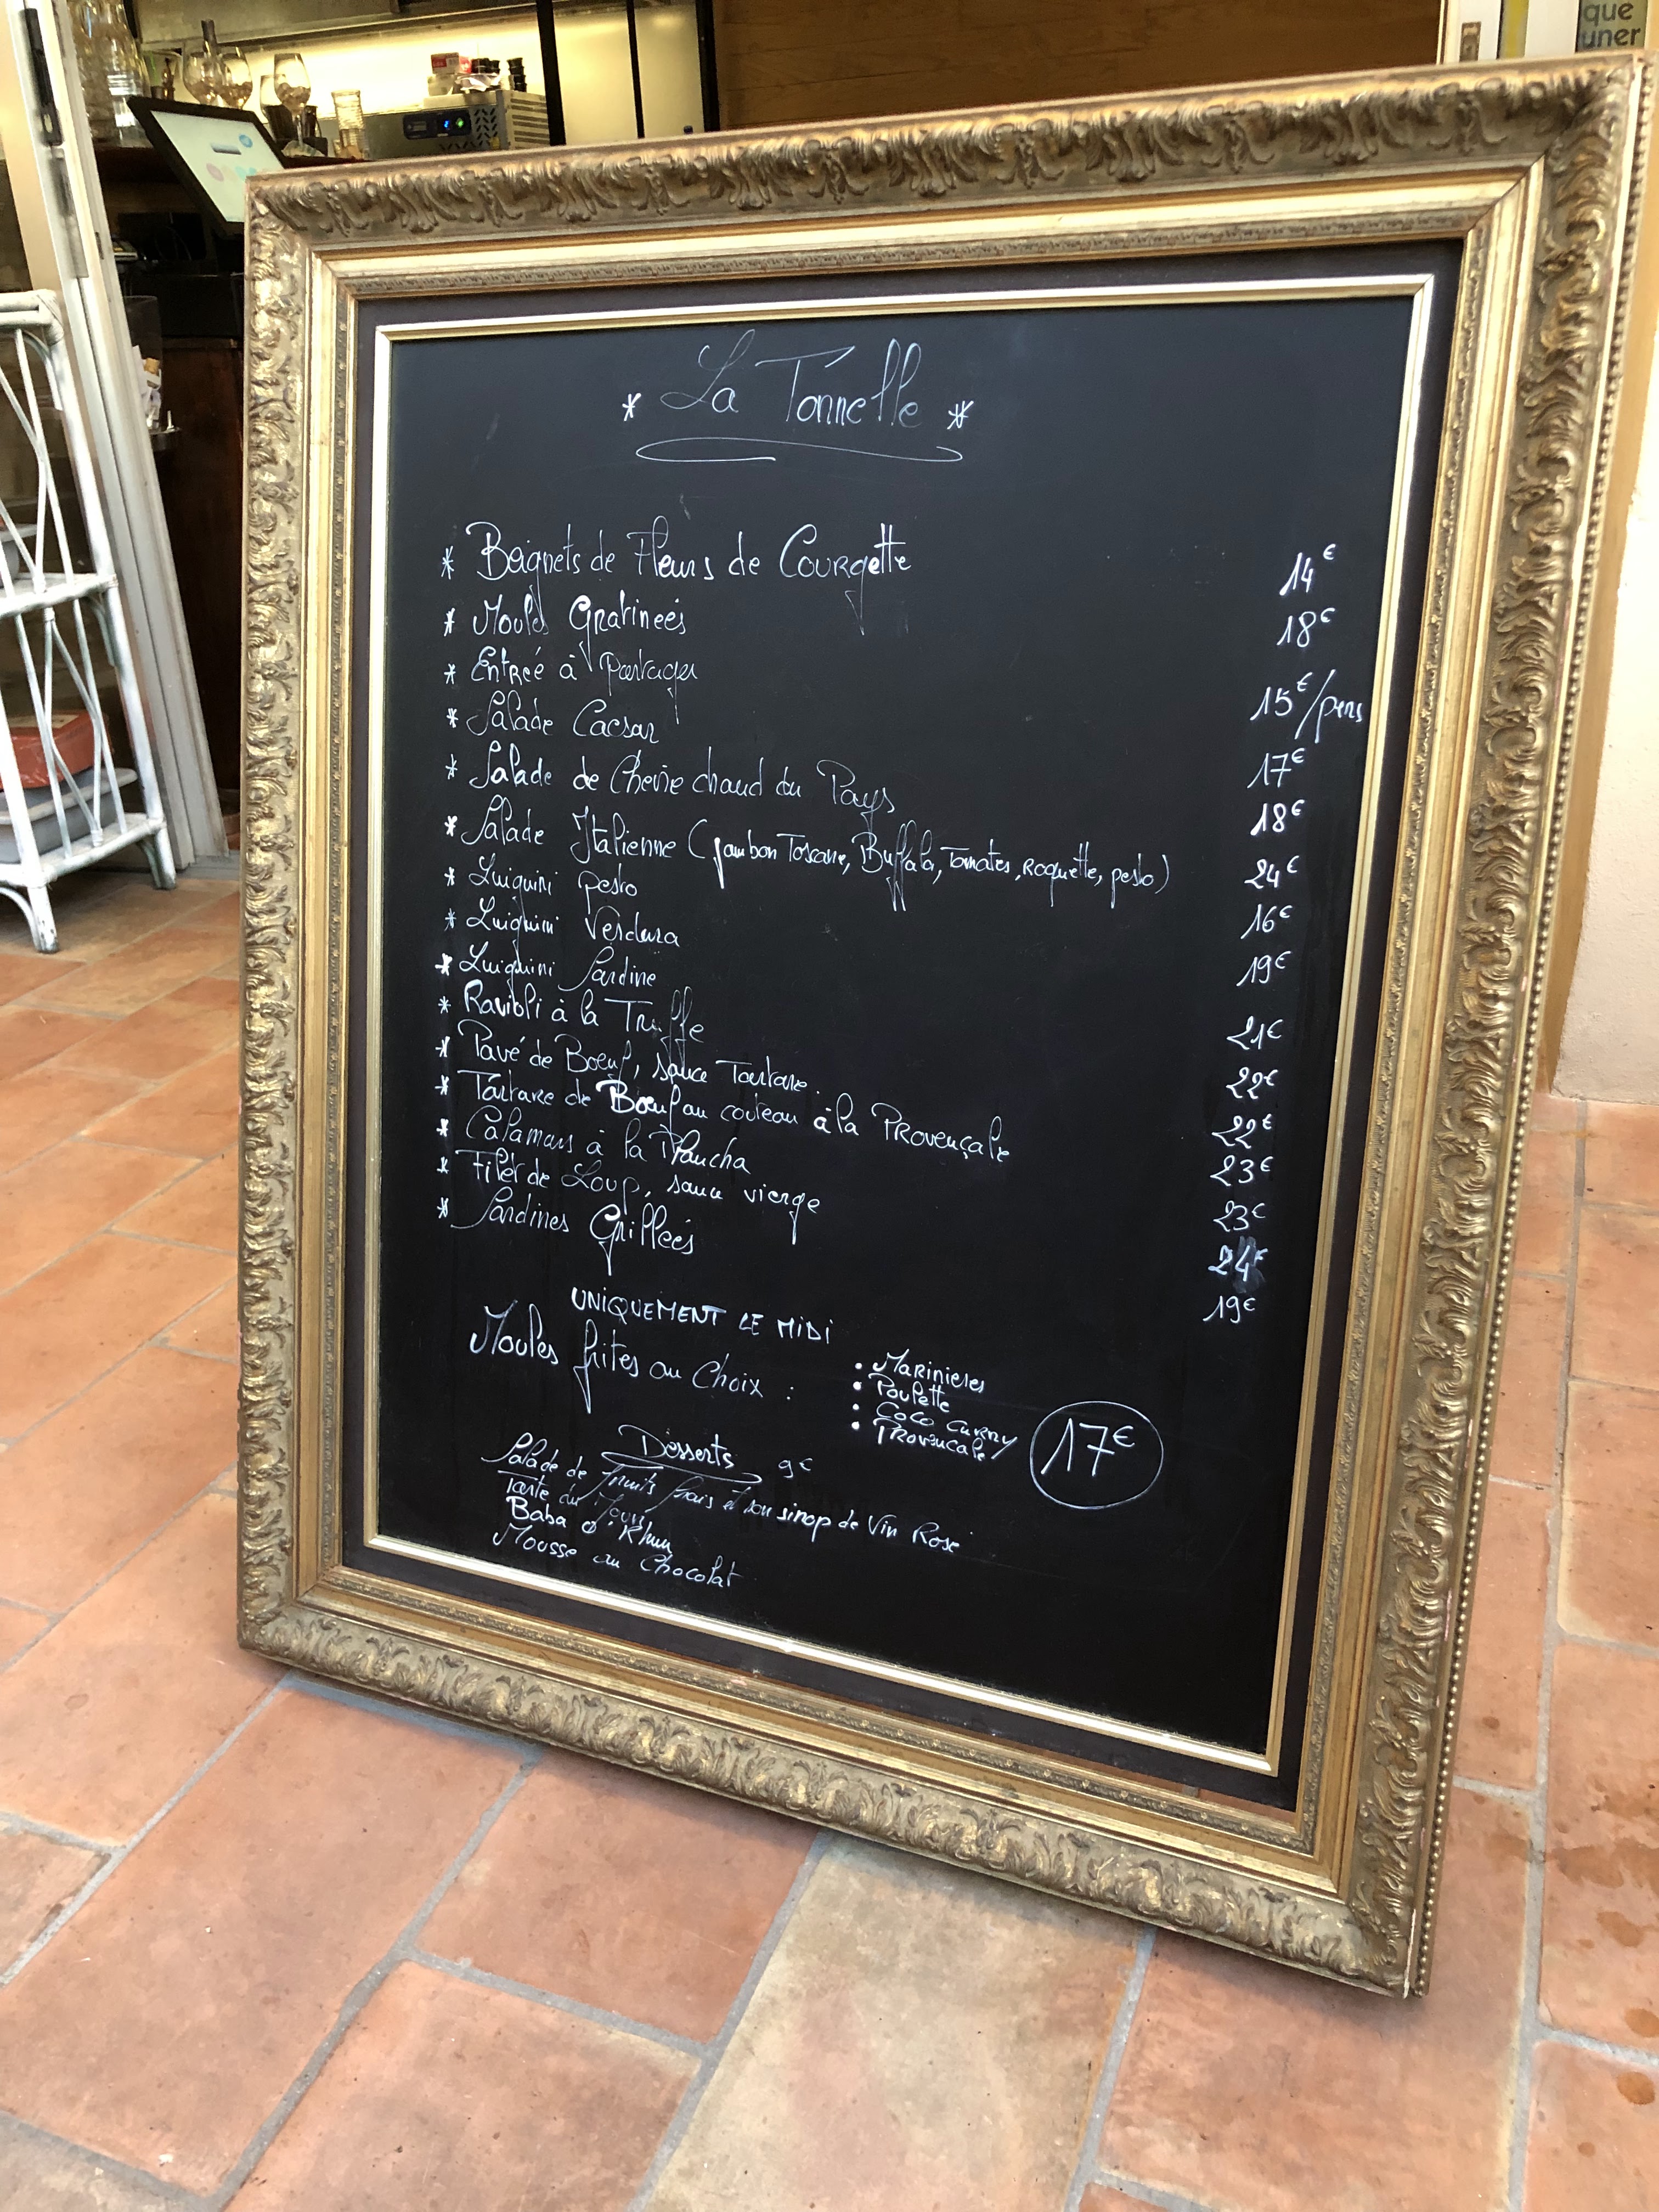 que
uner
* La Tonnelle *
* Beignets de Fleurs de Courgette 14€
* Moules Gratineés 18€
* Entreé à Partager 15€/pers
* Salade Caesar 17€
* Salade de Chèvre chaud du Pays 18€
* Salade Italienne (jambon Toscane, Buffala, Tomates, Roquette, pesto) 24€
* Luiguini pesto 16€
* Luiguini Verdura 19€
* Luiguini Sardine 21€
* Ravioli à la Truffe 22€
* Pavé de Boeuf, sauce Tartare. 22€
* Tartare de Boeuf au couteau à la Provençale 23€
* Calamars à la Plancha 23€
* Filet de Loup, sauce vierge 24€
* Sardines Grilleés 19€
UNIQUEMENT LE MIDI
Moules frites au Choix :
• Marinieres
• Poulette
• Coco Curry
• Provencale
17€
Desserts 9€
Salade de fruits frais et son sirop de Vin Rosé
Tarte du Jour
Baba Ô Rhum
Mousse au Chocolat